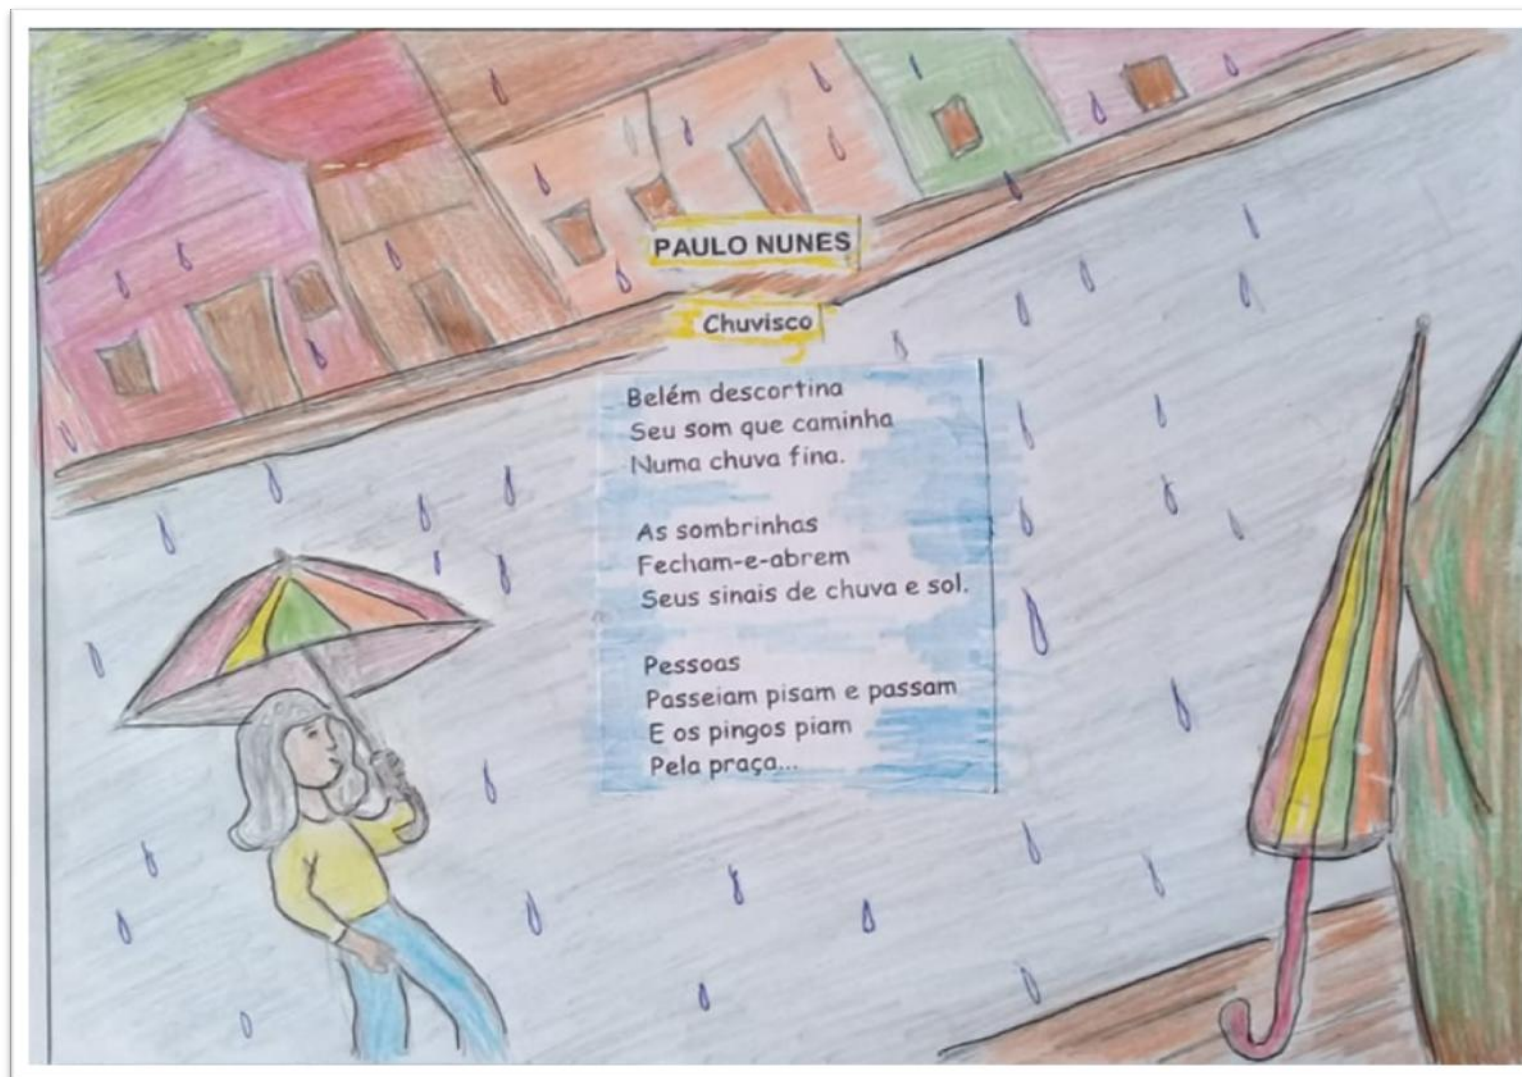 PAULO NUNES
Chuvisco
Belém descortina
Seu som que caminha
Numa chuva fina.
As sombrinhas
Fecham-e-abrem
Seus sinais de chuva e sol.
Pessoas
Passeiam pisam e passam
E os pingos piam
Pela praça...